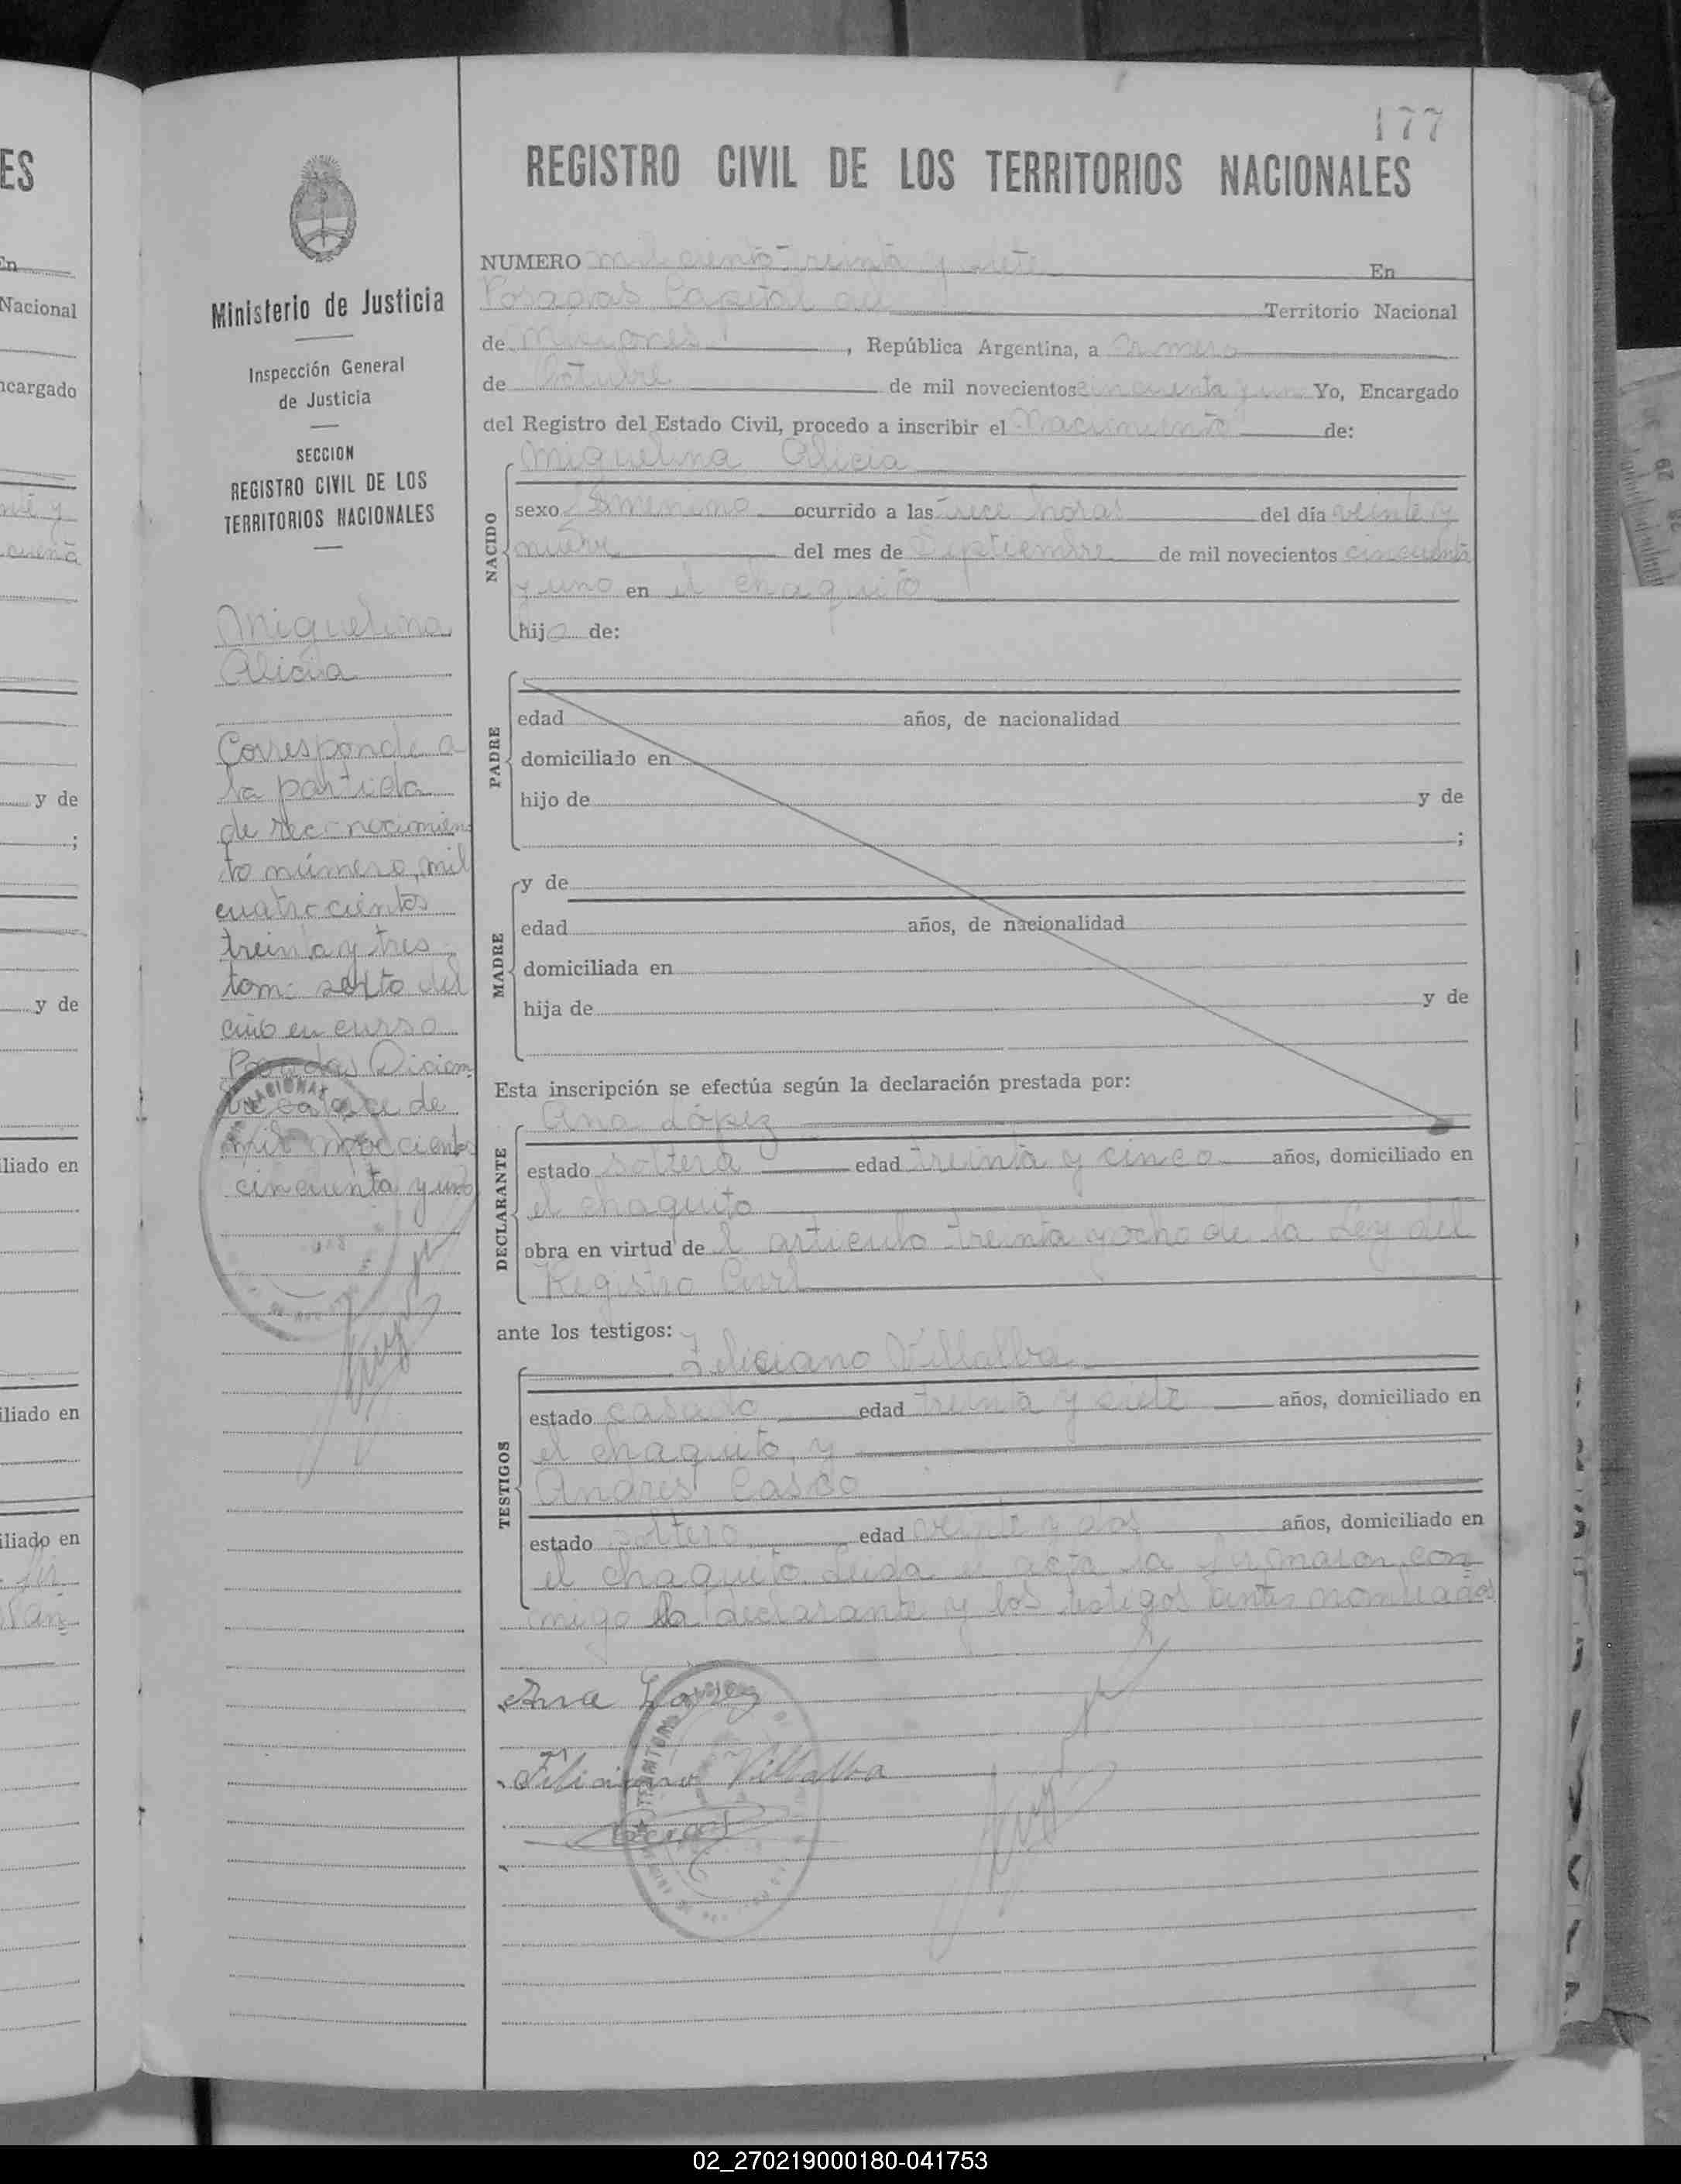 ES
En
Nacional
ncargado
y de
;
y de
iliado en
iliado en
iliado en
177
REGISTRO CIVIL DE LOS TERRITORIOS NACIONALES
Ministerio de Justicia
Inspección General
de Justicia
SECCION
REGISTRO CIVIL DE LOS
TERRITORIOS NACIONALES
Miguelina
Alicia
Corresponde a
la partida
de reconocimien
to número mil
cuatrocientos
treinta y tres
tomo sexto del
año en curso
Posadas Diciem
bre catorce de
mil novecientos
cincuenta y uno
NUMERO mil ciento treinta y siete En
Posadas Capital del Territorio Nacional
de Misiones, República Argentina, a primero
de Octubre de mil novecientos cincuenta y uno Yo, Encargado
del Registro del Estado Civil, procedo a inscribir el Nacimiento de:
NACIDO
Miguelina Alicia
sexo femenino ocurrido a las trece horas del día veinte y
nueve del mes de Septiembre de mil novecientos cincuenta
y uno en el chaquito
hija de:
PADRE
edad años, de nacionalidad
domiciliado en
hijo de y de
;
MADRE
y de
edad años, de nacionalidad
domiciliada en
hija de y de
Esta inscripción se efectúa según la declaración prestada por:
DECLARANTE
Ana López
estado soltera edad treinta y cinco años, domiciliado en
el chaquito
obra en virtud del articulo treinta y ocho de la Ley del
Registro Civil
ante los testigos:
TESTIGOS
Feliciano Villalba
estado casado edad treinta y siete años, domiciliado en
el chaquito, y
Andres Casco
estado soltero edad veinte y dos años, domiciliado en
el chaquito leida el acta la firmaron con
migo la declarante y los testigos antes nombrados
Ana López
Feliciano Villalba
02_270219000180-041753